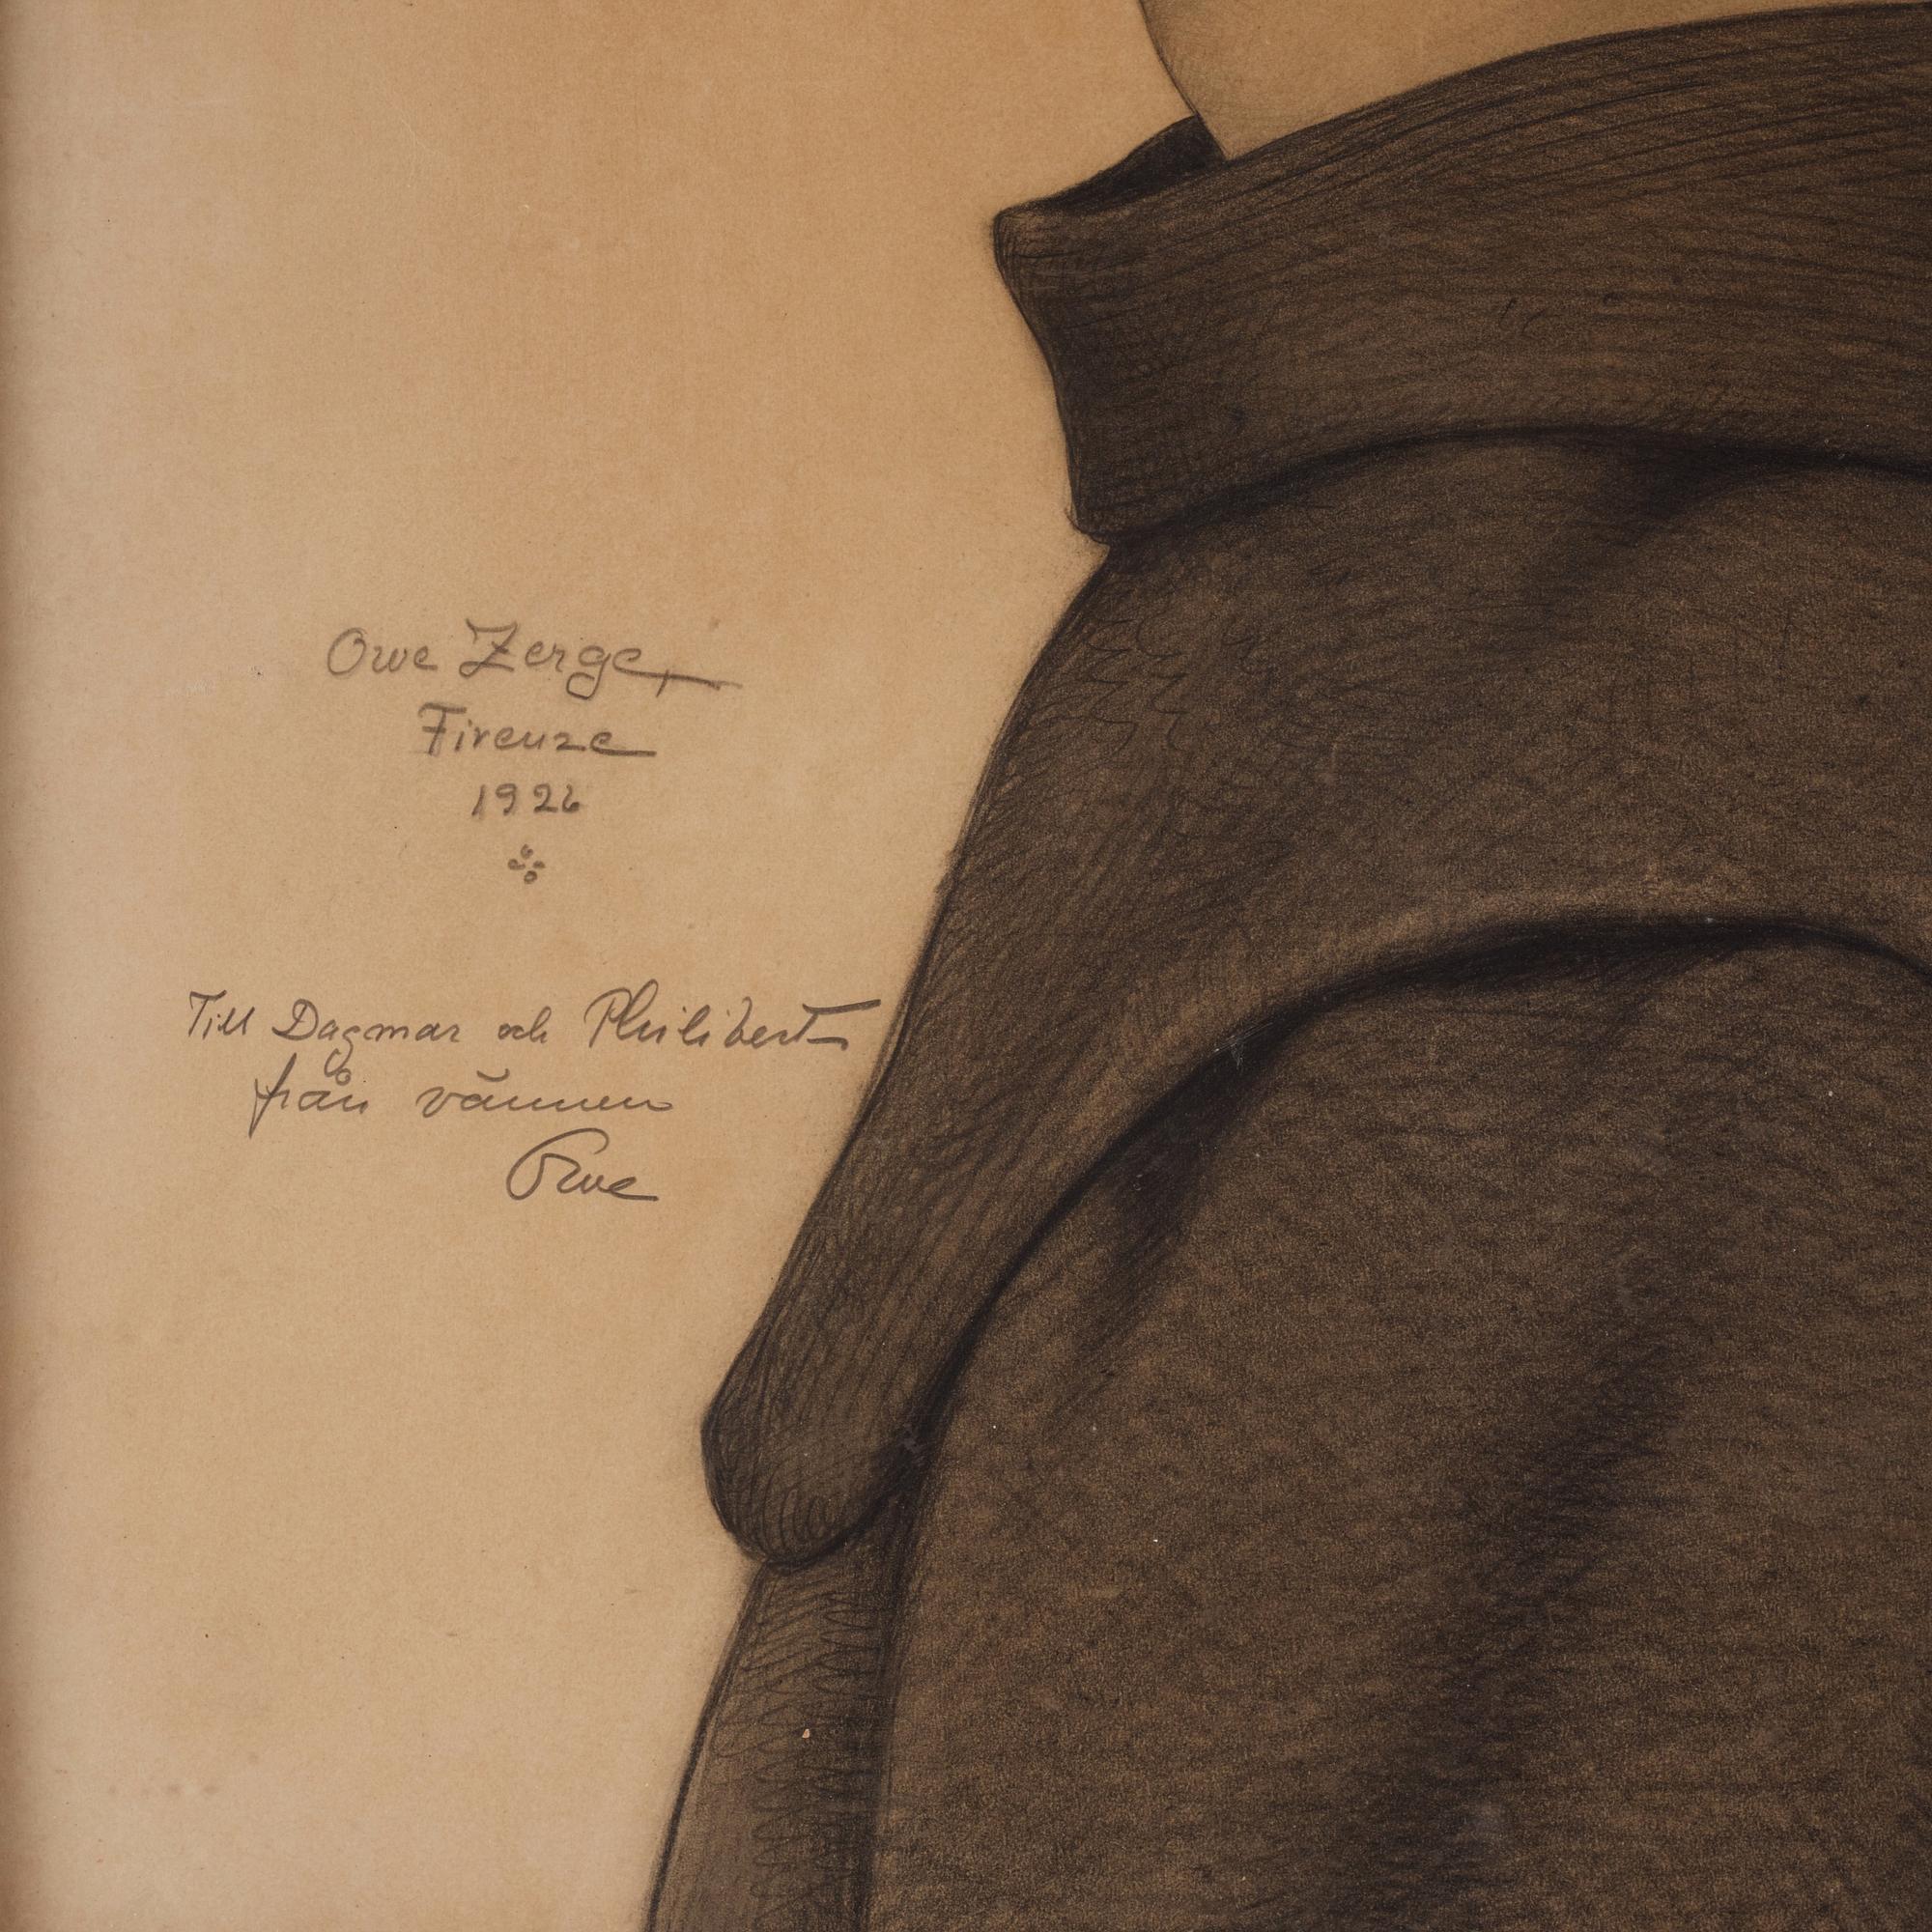 Owe Zerge
Firenze
1926
Till Dagmar och Philibert
från vännen
Owe